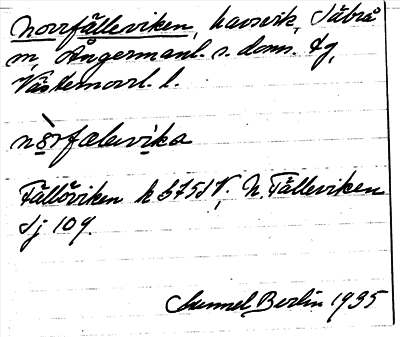 Norrfälleviken, havsvik, Säbrå
sn, Ångermanl. s. doms. tg,
Västernorrl. l.
nòrfælevika
Fällöviken k 375 SV; N. Fälleviken
Sj 109.
Sunnel Berlin 1935